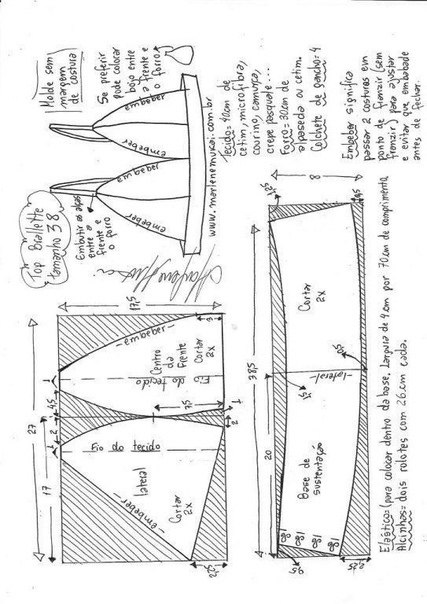 Top Brallette
tamanho 38
Molde sem
margem
de costura
Se preferir
pode colocar
bojo entre
a frente e
o forro
embeber
embeber
embeber
embeber
Embutir as alças
entre a
frente e
o forro
www.marlenemukai.com.br
Tecido = 40cm de
cetim, microfibra,
courino, camurça,
crepe pasquale...
Forro = 30cm de
alpaseda ou cetim.
Colchete de gancho = 4
Embeber significa
passar 2 costuras em
ponto de franzir (sem
franzir) para ajustar
e evitar que embabade
antes de fechar
27
17
4,5
17,5
7,5
2
2
1
1
3
Fio do tecido
lateral
embeber
Cortar
2x
Centro
da
frente
Fio do tecido
embeber
Cortar
2x
38,5
20
8
Base de
sustentação
Cortar
2x
lateral
Elástico = (para colocar dentro da base. Largura de 4cm por 70cm de comprimento.
Alcinhas = dois rolotes com 26cm cada.